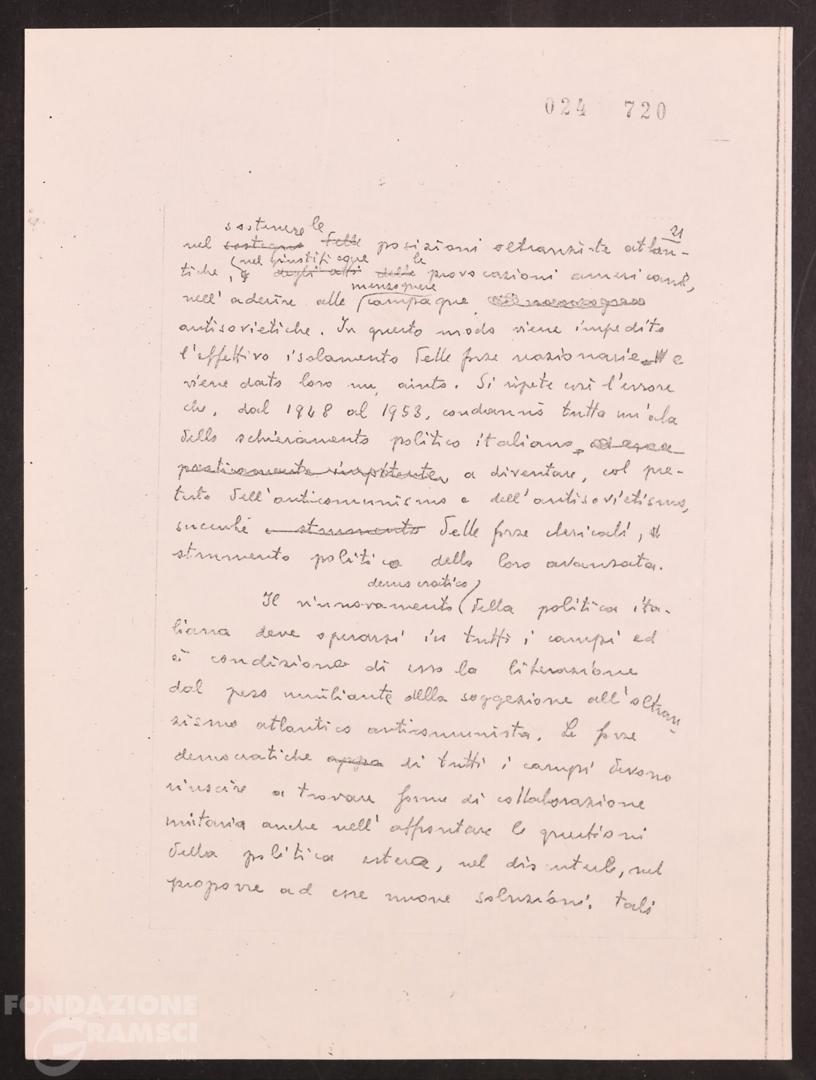 024 720
21
sostenere le
nel sostegno delle posizioni oltranziste atlan-
nel giustificare le
tiche, e degli atti delle provocazioni americane,
menzognere
nell'aderire alle campagne
antisovietiche. In questo modo viene impedito
l'effettivo isolamento delle forze reazionarie e
viene dato loro un aiuto. Si ripete così l'errore
che, dal 1948 al 1953, condannò tutta un'ala
dello schieramento politico italiano,
praticamente impotente, a diventare, col pre-
testo dell'anticomunismo e dell'antisovietismo,
succube e strumento delle forze clericali,
strumento politico della loro avanzata.
democratico
Il rinnovamento della politica ita-
liana deve operarsi in tutti i campi ed
è condizione di esso la liberazione
dal peso umiliante della soggezione all'oltran-
zismo atlantico anticomunista. Le forze
democratiche di tutti i campi devono
riuscire a trovare forme di collaborazione
unitaria anche nell'affrontare le questioni
della politica estera, nel discuterle, nel
proporre ad esse nuove soluzioni. Tali
FONDAZIONE
GRAMSCI